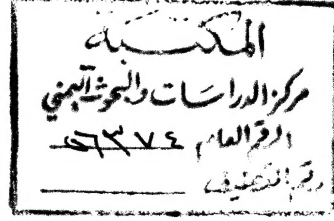 المكتبة
مركز الدراسات والبحوث اليمني
الرقم العام ٦٣٧٤
رقم التصنيف